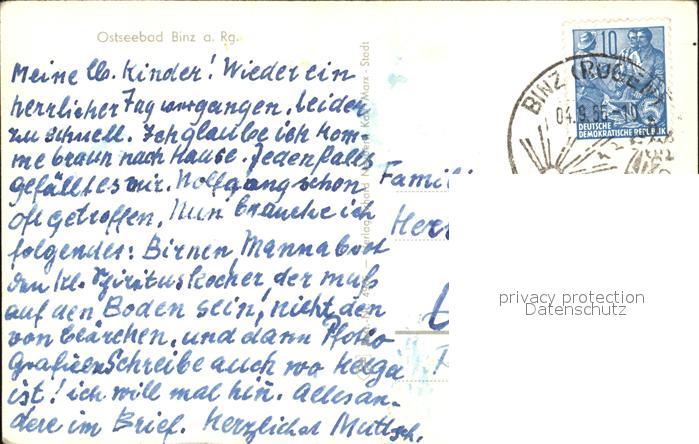 Ostseebad Binz a. Rg.
Meine lb. Kinder! Wieder ein
herrlicher Tag vergangen, leider
zu schnell. Ich glaube ich kom-
me braun nach Hause. Jedenfalls
gefällt es mir. Wolfgang schon
oft getroffen. Nun brauche ich
folgendes: Birnen, Mannaboot
den kl. Spirituskocher, der muß
auf den Boden sein, nicht den
von Clärchen, und dann Photo
grafieen Schreibe auch wo Helga
ist! ich will mal hin. Alles an-
dere im Brief. Herzlichst Muttsch.
Karl-Marx-Stadt
Famili
Her
BINZ (RÜGEN)
10
DEUTSCHE
DEMOKRATISCHE REPUBLIK
privacy protection
Datenschutz